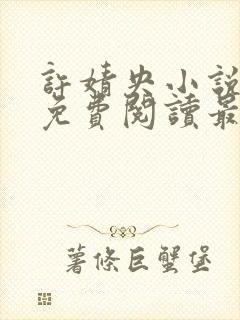 許婧央小說
免費閱讀最
薯條巨蟹堡